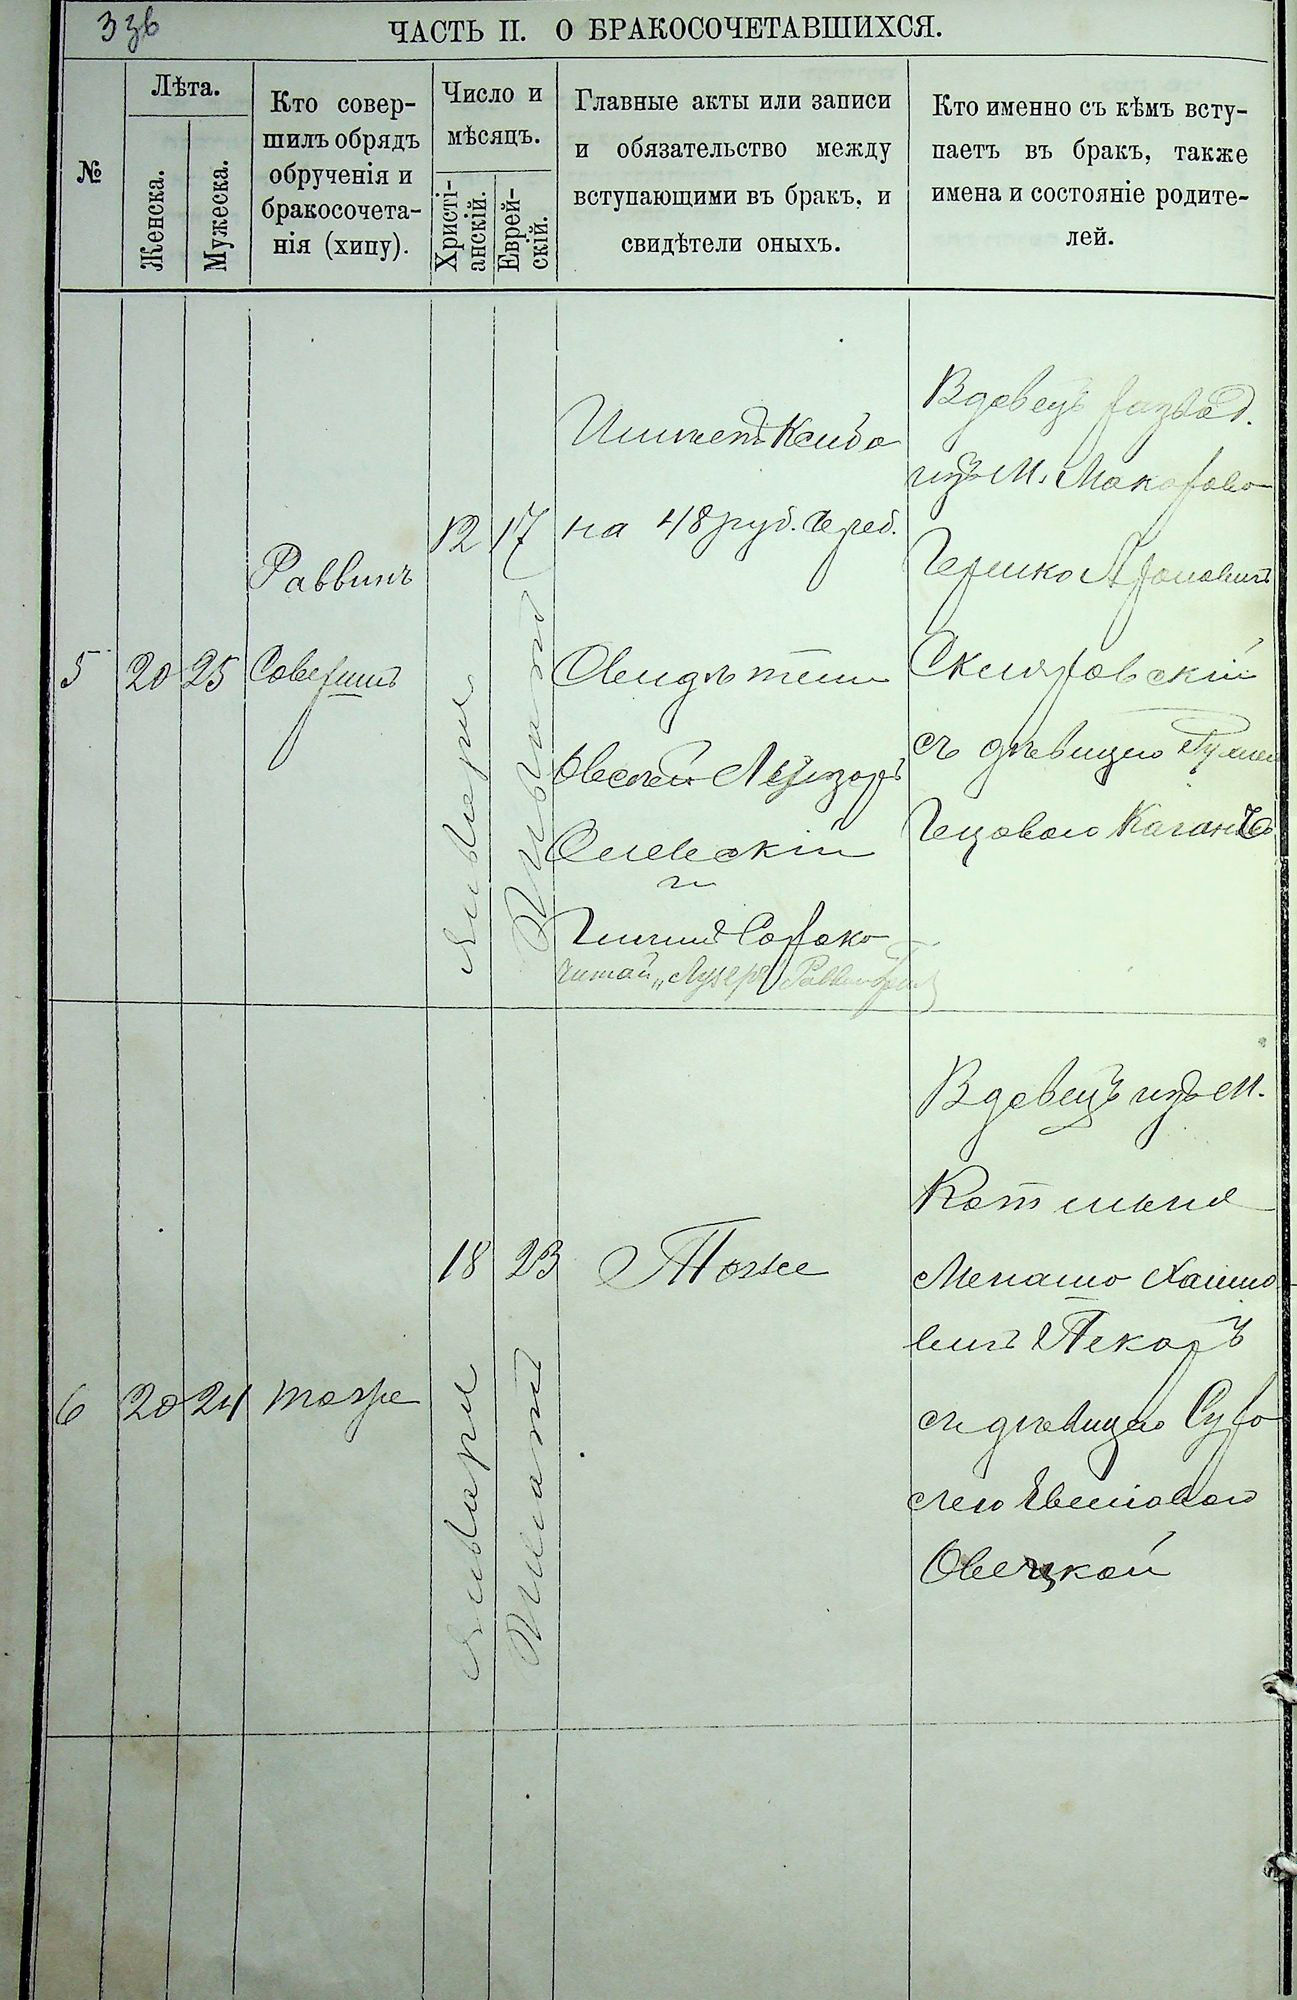 3 зв
ЧАСТЬ II. О БРАКОСОЧЕТАВШИХСЯ.
№
Лѣта.
Женска.
Мужеска.
Кто совер-
шилъ обрядъ
обрученія и
бракосочета-
нія (хипу).
Число и
мѣсяцъ.
Христі-
анскій.
Еврей-
скій.
Главные акты или записи
и обязательство между
вступающими въ бракъ, и
свидѣтели оныхъ.
Кто именно съ кѣмъ всту-
паетъ въ бракъ, также
имена и состояніе родите-
лей.
5
20
25
Раввинъ
Совершилъ
12
Января
17
на 48 руб. Сереб.
Свидѣтели
Овсей Лейзоръ
Олевскій
и
Сороко
Читай „Лузеръ"
Вдовецъ развод.
изъ М. Макарова
Гершко Ароновичъ
Скляровскій
съ дѣвицею
Гецовою Каганъ
6
20
24
тоже
18
Января
23
Тоже
Вдовецъ изъ М.
Котельня
Менашо Хаимо
вичъ Пекаръ
съ дѣвицею Суро
Овецкой